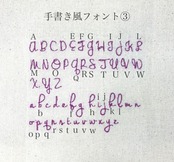 手書き風フォント③
A EFG IJL
ABCDEFGHIJKL
MNOPQRSTUVW
M O QRS T U V W
XYZ
i j l
abcdefghijklmn
b f g h k
opqrstuvwxyz
opq rstuvw